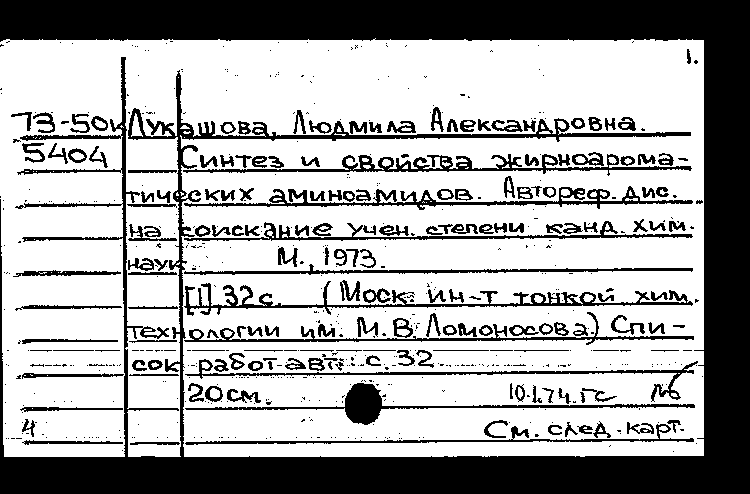 1.
73-50к Лукашова, Людмила Александровна.
5404 Синтез и свойства жирноарома-
тических аминоамидов. Автореф. дис.
на соискание учен. степени канд. хим.
наук. М., 1973.
[1], 32 с. (Моск. ин-т тонкой хим.
технологии им. М.В. Ломоносова) Спи-
сок работ авт.: с. 32
20 см. 10.1.74. гс
4 См. след. карт.